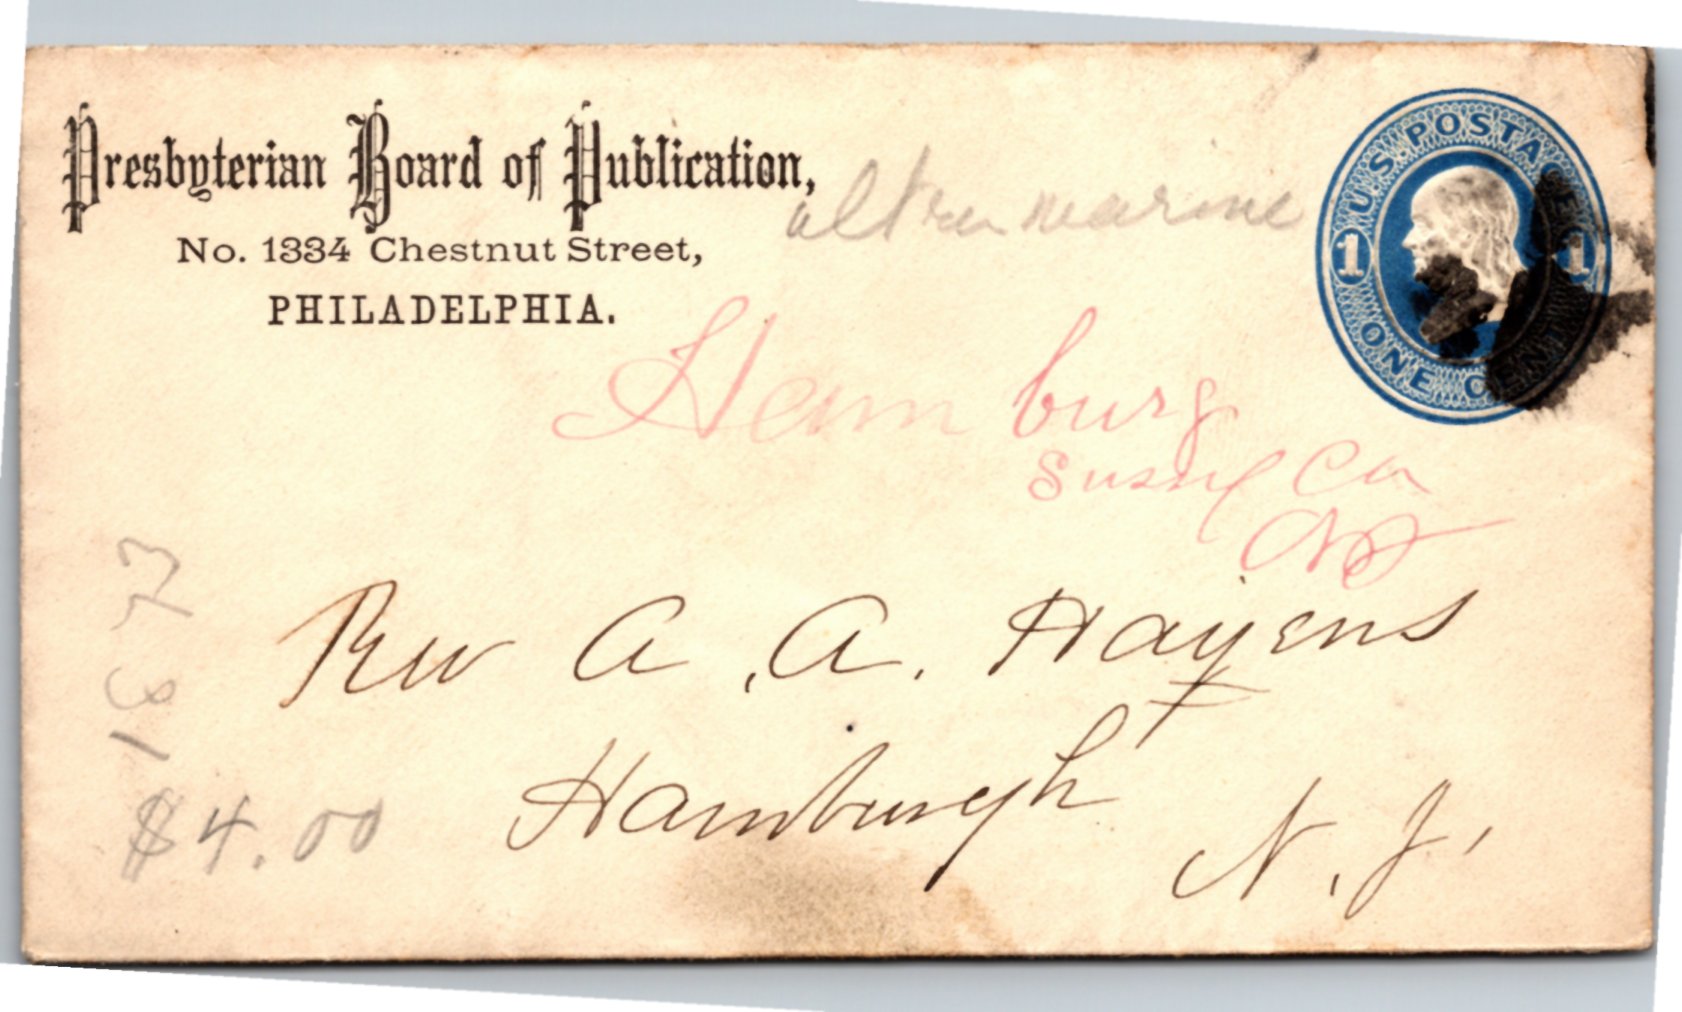 Presbyterian Board of Publication,
No. 1334 Chestnut Street,
PHILADELPHIA.
U.S. POSTAGE
1 1
ONE CENT
ultramarine
Hamburg
Sussex Co
NJ
Rev A. A. Haynes
Hamburgh
N. J.
$4.00